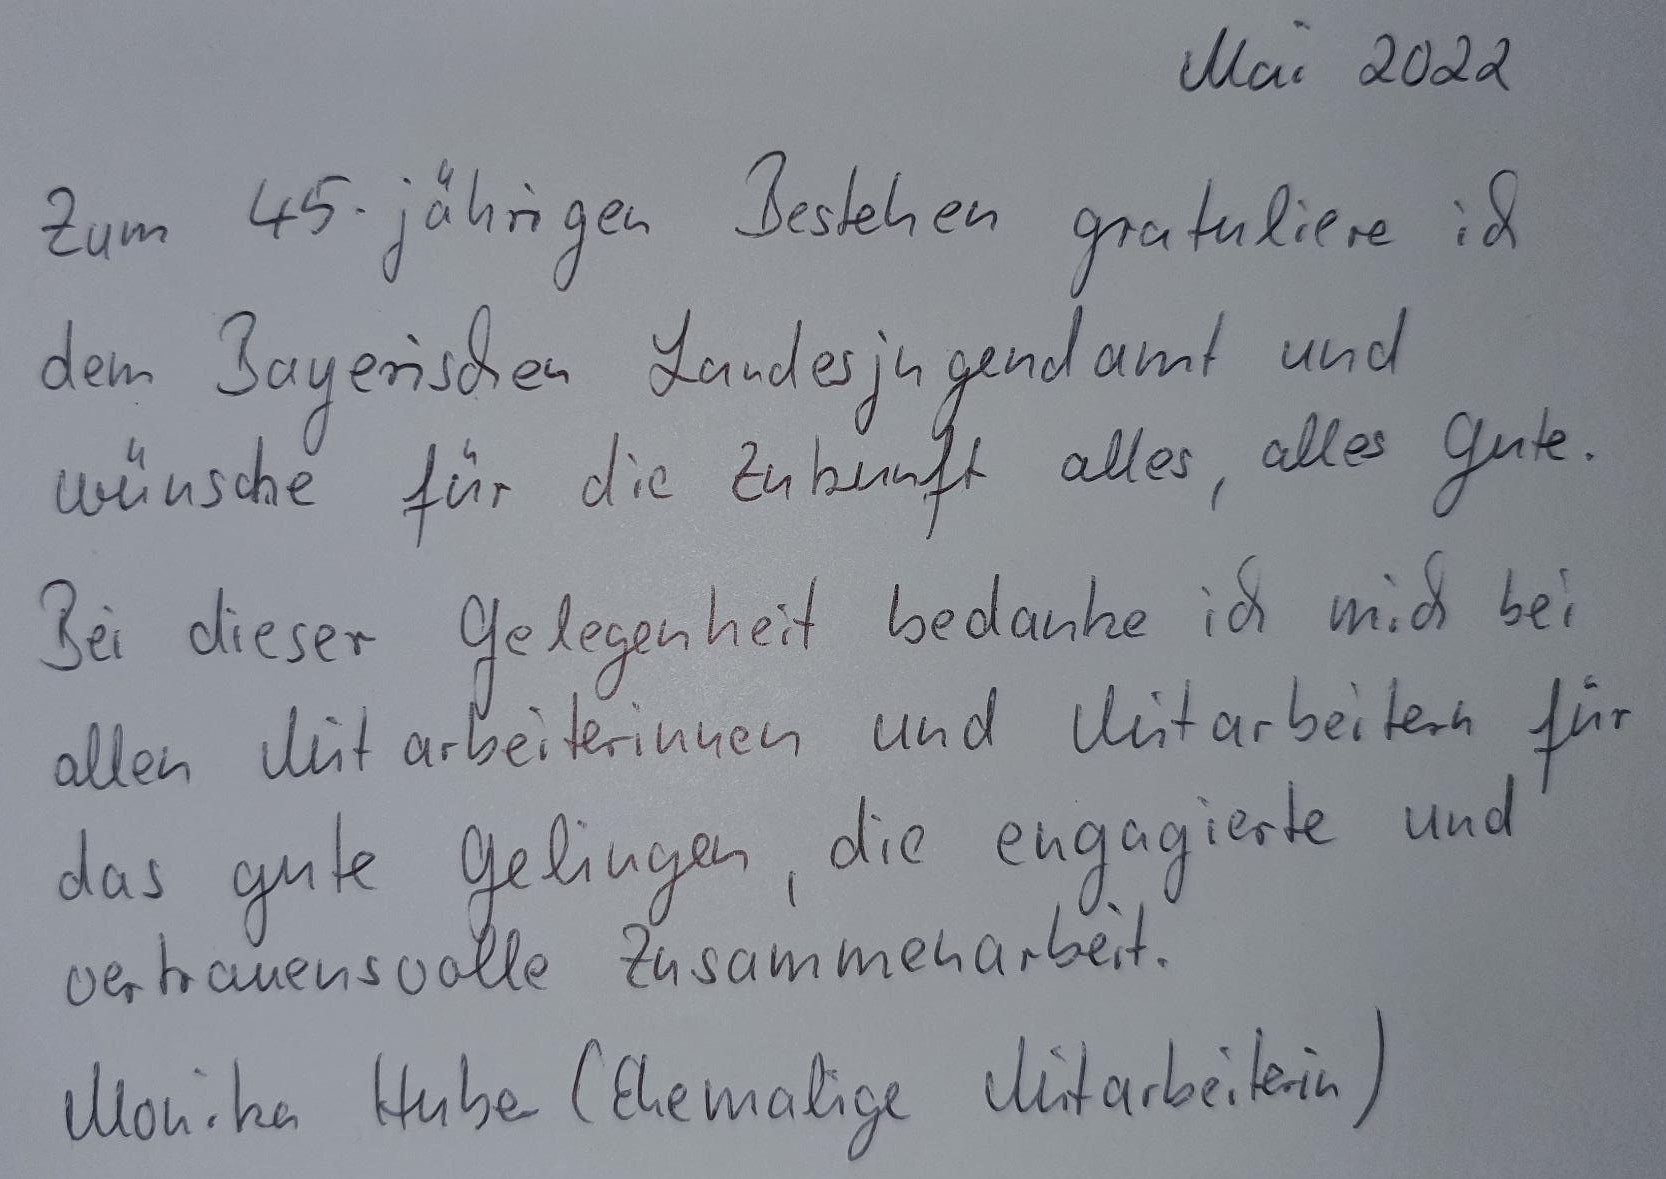 Mai 2022
Zum 45-jährigen Bestehen gratuliere ich
dem Bayerischen Landesjugendamt und
wünsche für die Zukunft alles, alles Gute.
Bei dieser Gelegenheit bedanke ich mich bei
allen Mitarbeiterinnen und Mitarbeitern für
das gute Gelingen, die engagierte und
vertrauensvolle Zusammenarbeit.
Monika Huber (Ehemalige Mitarbeiterin)